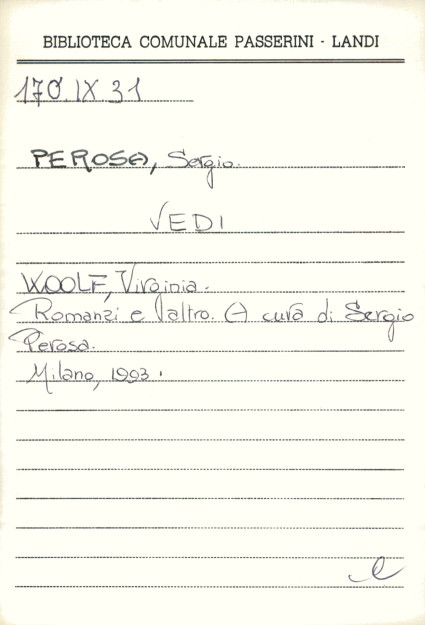 BIBLIOTECA COMUNALE PASSERINI - LANDI
170.IX 31
PEROSA, Sergio.
VEDI
WOOLF, Virginia.
Romanzi e l'altro. A cura di Sergio
Perosa.
Milano, 1993.